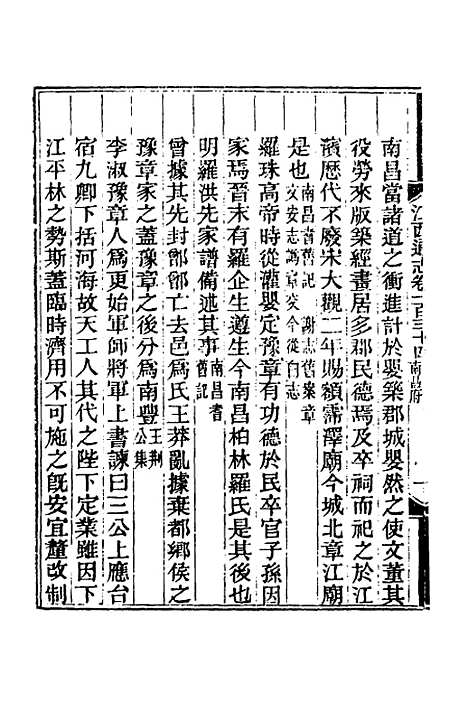 江西通志卷一百三十四南昌府
南昌當諸道之衝進計於嬰築郡城嬰然之使文董其
役勞來版築經畫居多郡民德焉及卒祠而祀之於江
濱歷代不廢宋大觀二年賜額霈澤廟今城北章江廟
是也南昌耆舊記 謝志舊案章文安志譌宦文今從白志
羅珠高帝時從灌嬰定豫章有功德於民卒官子孫因
家焉晉末有羅企生遵生今南昌柏林羅氏是其後也
明羅洪先家譜備述其事南昌耆舊記
曾據其先封鄫鄫亡去邑爲氏王莽亂據棄都鄉侯之
豫章家之蓋豫章之後分爲南豐王荆公集
李淑豫章人爲更始軍師將軍上書諫曰三公上應台
宿九卿下括河海故天工人其代之陛下定業雖因下
江平林之勢斯蓋臨時濟用不可施之旣安宜釐改制